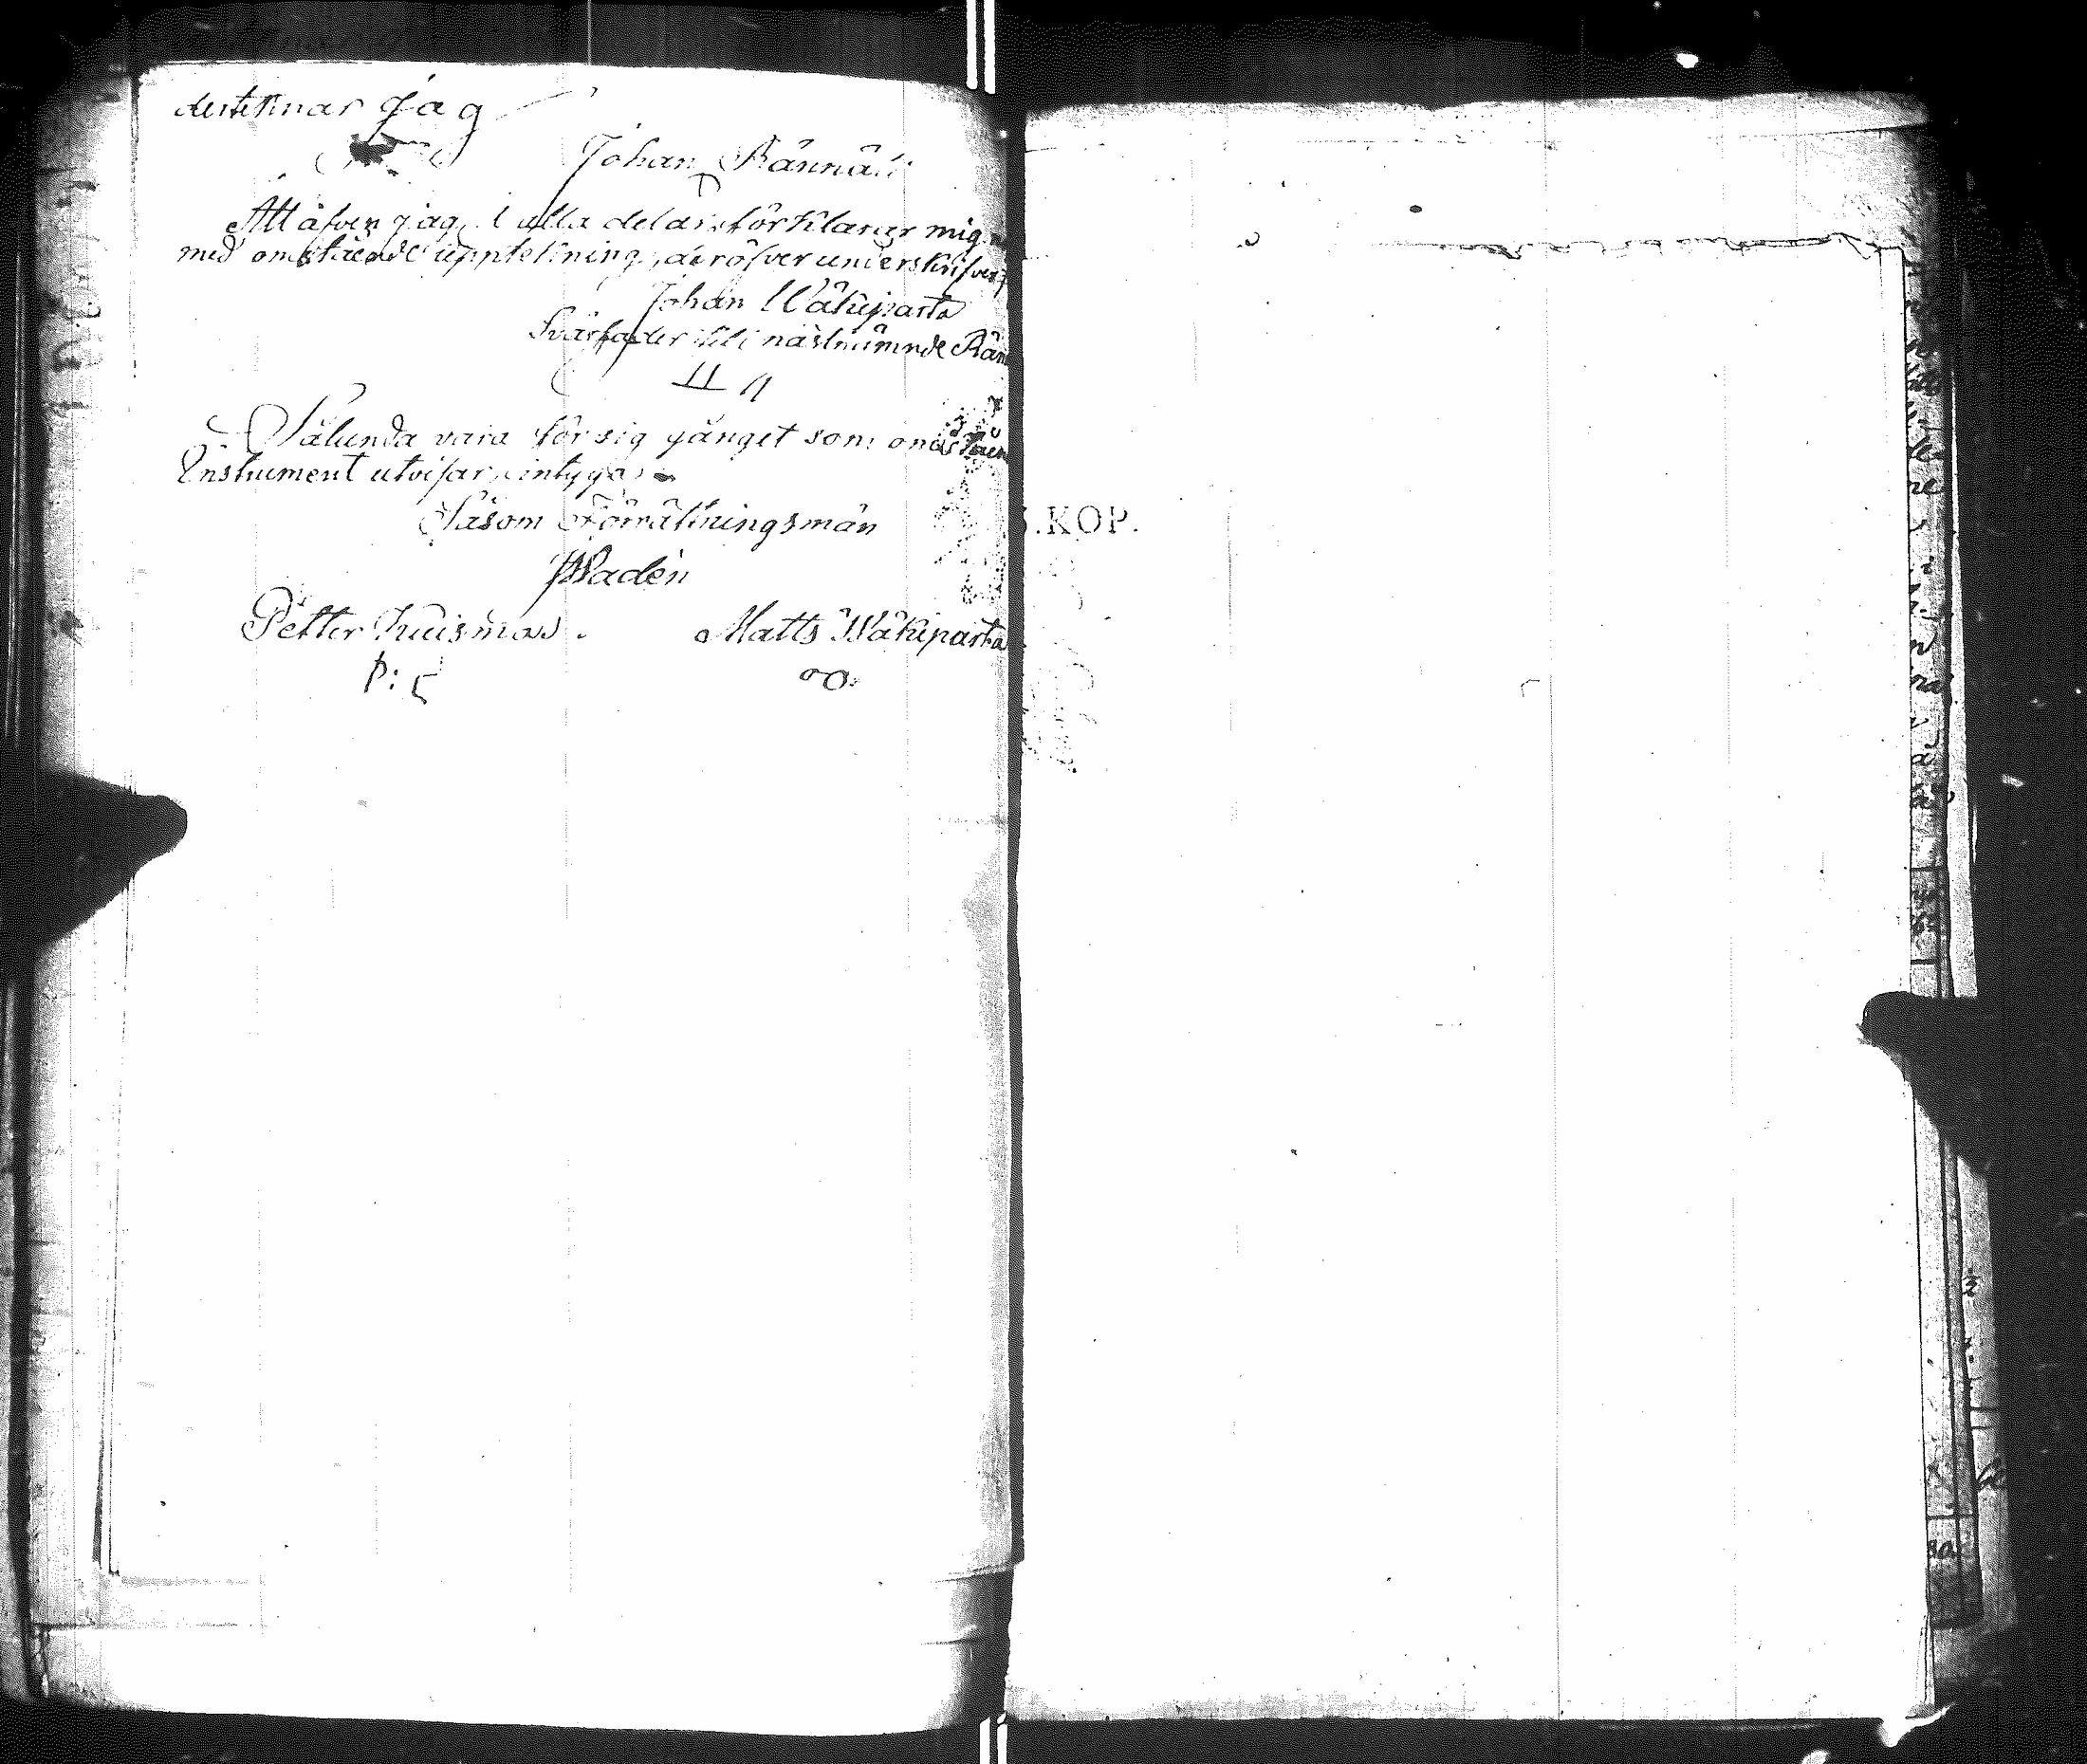 derteknar Jag
Johan Rännäli
Att äfven jag i alla delar förklarar mig
med omstående upptekning, deröfver underskrifver
Johan Wäkiparta
Svärfader till nästnämnde Rän
Sålunda vara för sig gånget som omstäen
Instrument utvisar, intygar
Såsom Förrättningsmän
Wadén
Petter Huismas.
Matts Wäkiparta
P:
S.KOP.